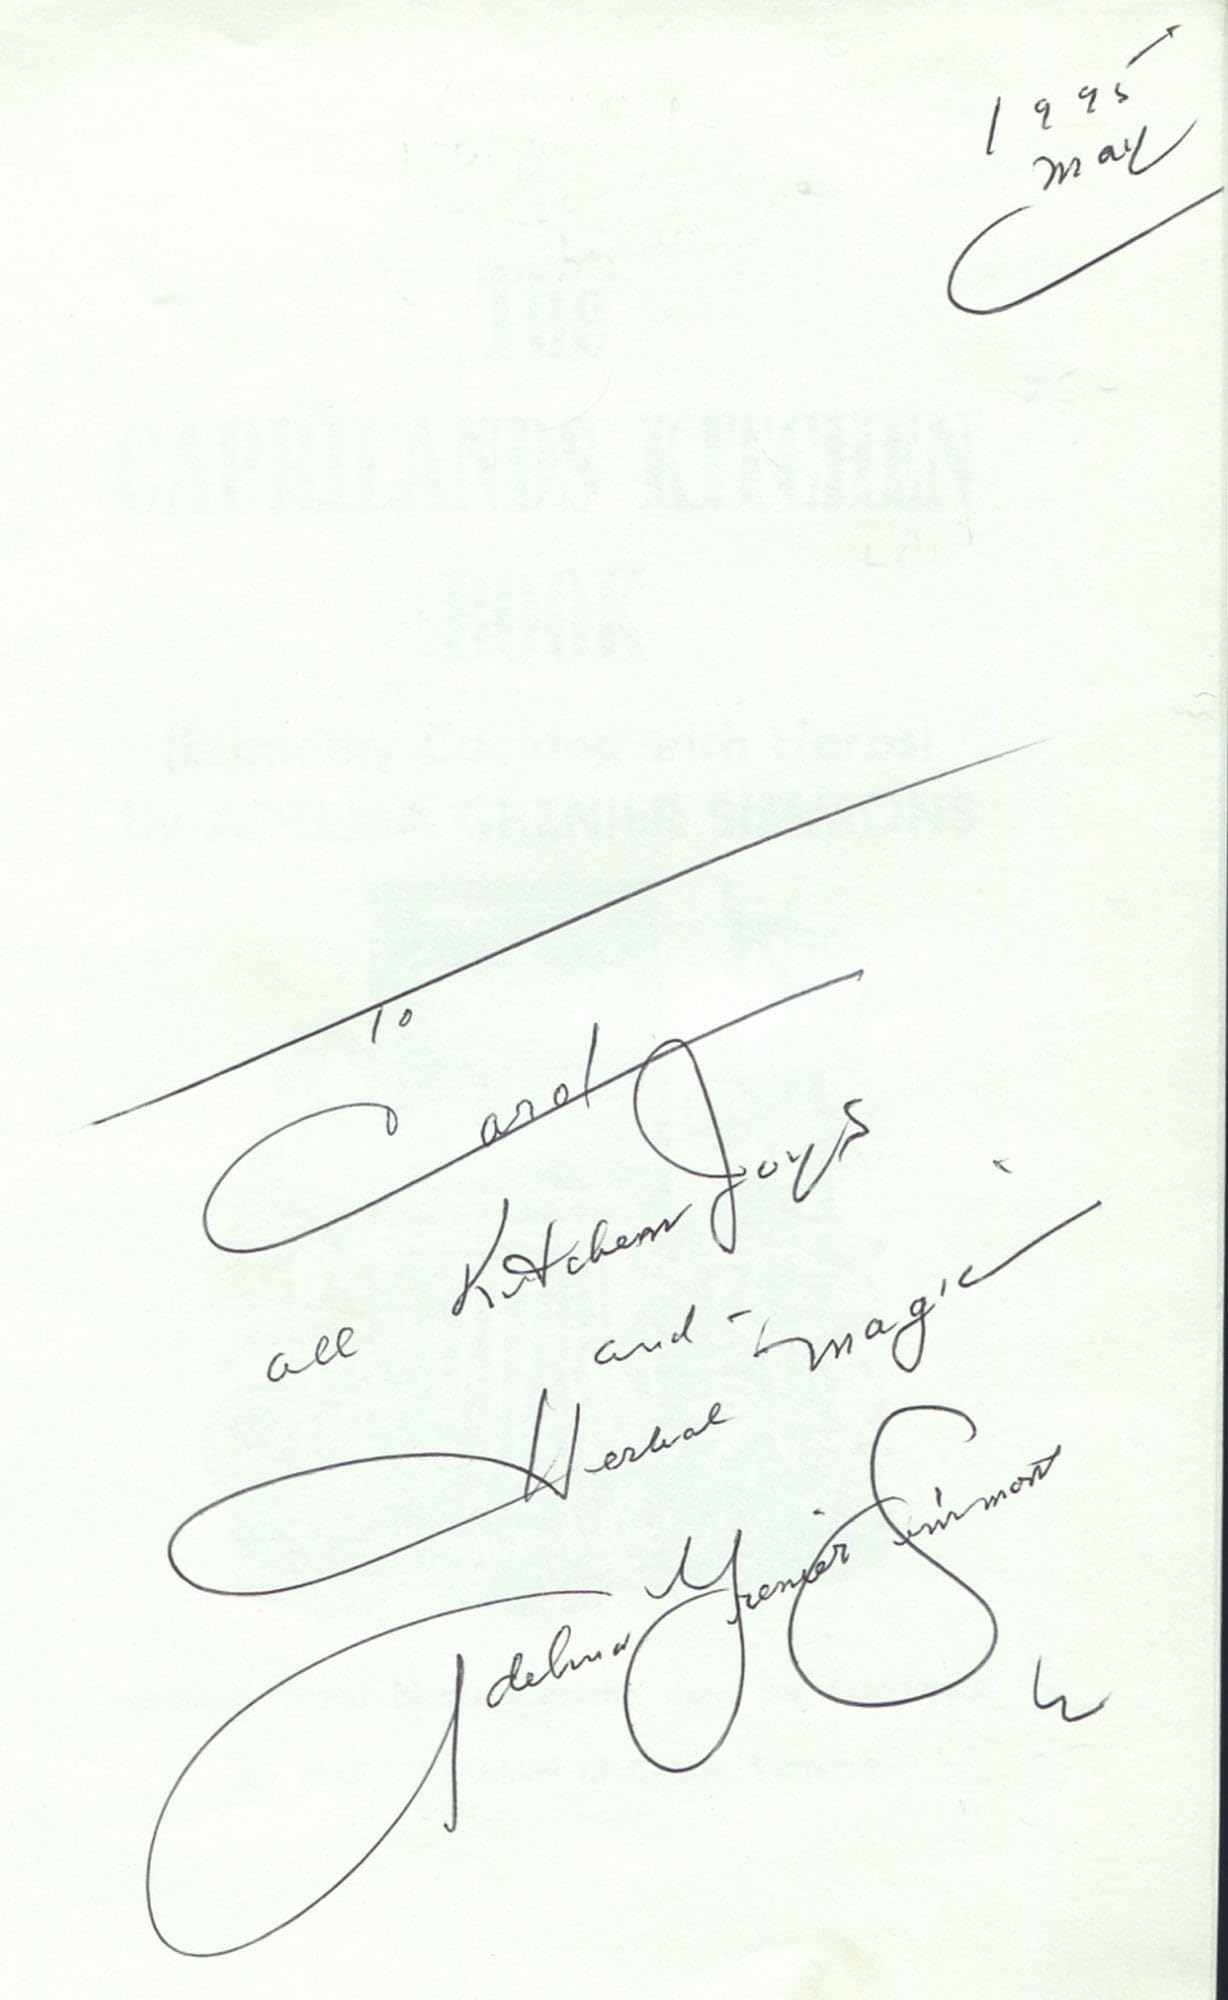 1995
May
The
CAPRILANDS KITCHEN
BOOK
(Economy Cooking with Herbs)
by ADELMA GRENIER SIMMONS
To
Carol
all Kitchen Joys
and - magic
Herbal
Adelma Grenier Simmons